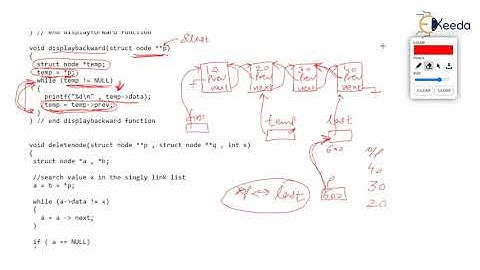 } // end displayforward function
void displaybackward(struct node **p)
{
struct node *temp;
temp = *p;
while (temp != NULL)
{
printf("%d\n" , temp->data);
temp = temp->prev;
}
} // end displaybackward function
void deletenode(struct node **p , struct node **q , int x)
{
struct node *a , *b;
//search value x in the singly link list
a = b = *p;
while (a->data != x)
{
a = a -> next;
}
if ( a == NULL)
&last
10 20 30 40
Prev Prev Prev Prev
next next next next
first temp last
600
P
600
*p <-> last
o/p
40
30
20
Keeda
CLEAR CLEAR